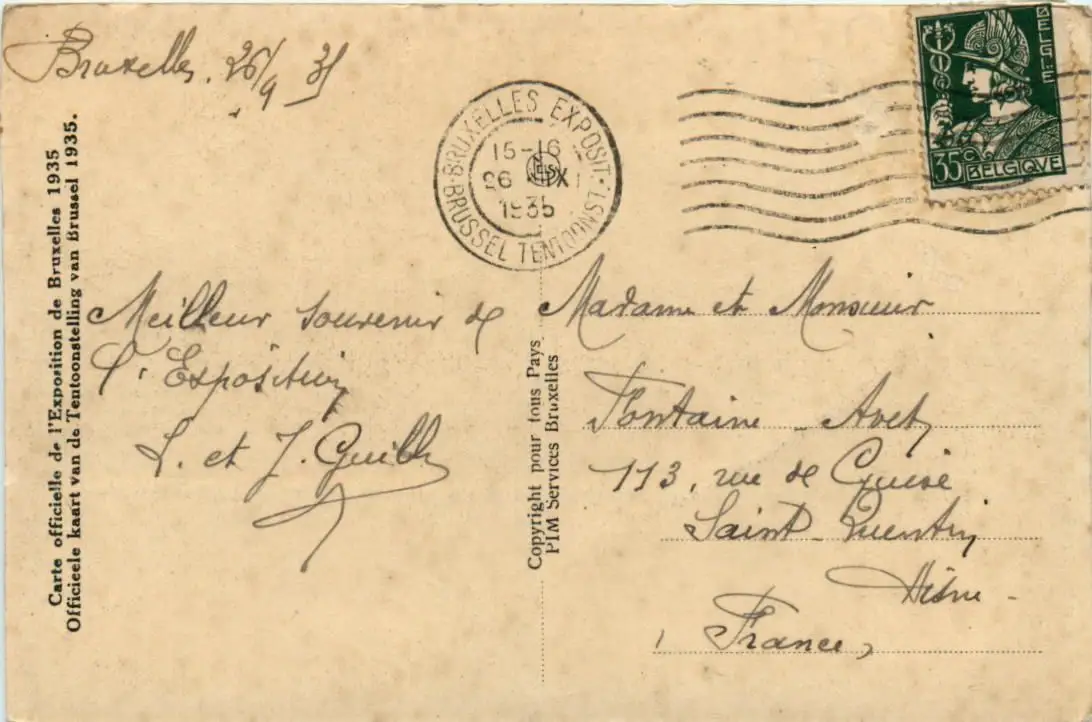 Bruxelles. 26/9 35
BRUXELLES EXPOSIT.
15-16
26 IX
1935
BRUSSEL TENTOONST.
BELGIE
35 C
BELGIQVE
Carte officielle de l'Exposition de Bruxelles 1935
Officieele kaart van de Tentoonstelling van Brussel 1935.
Meilleur souvenir de
l'Exposition
L. et J.
Copyright pour tous Pays
PIM Services Bruxelles
Madame et Monsieur
Fontaine - Avet
113, rue de Guise
Saint Quentin
Aisne -
France,